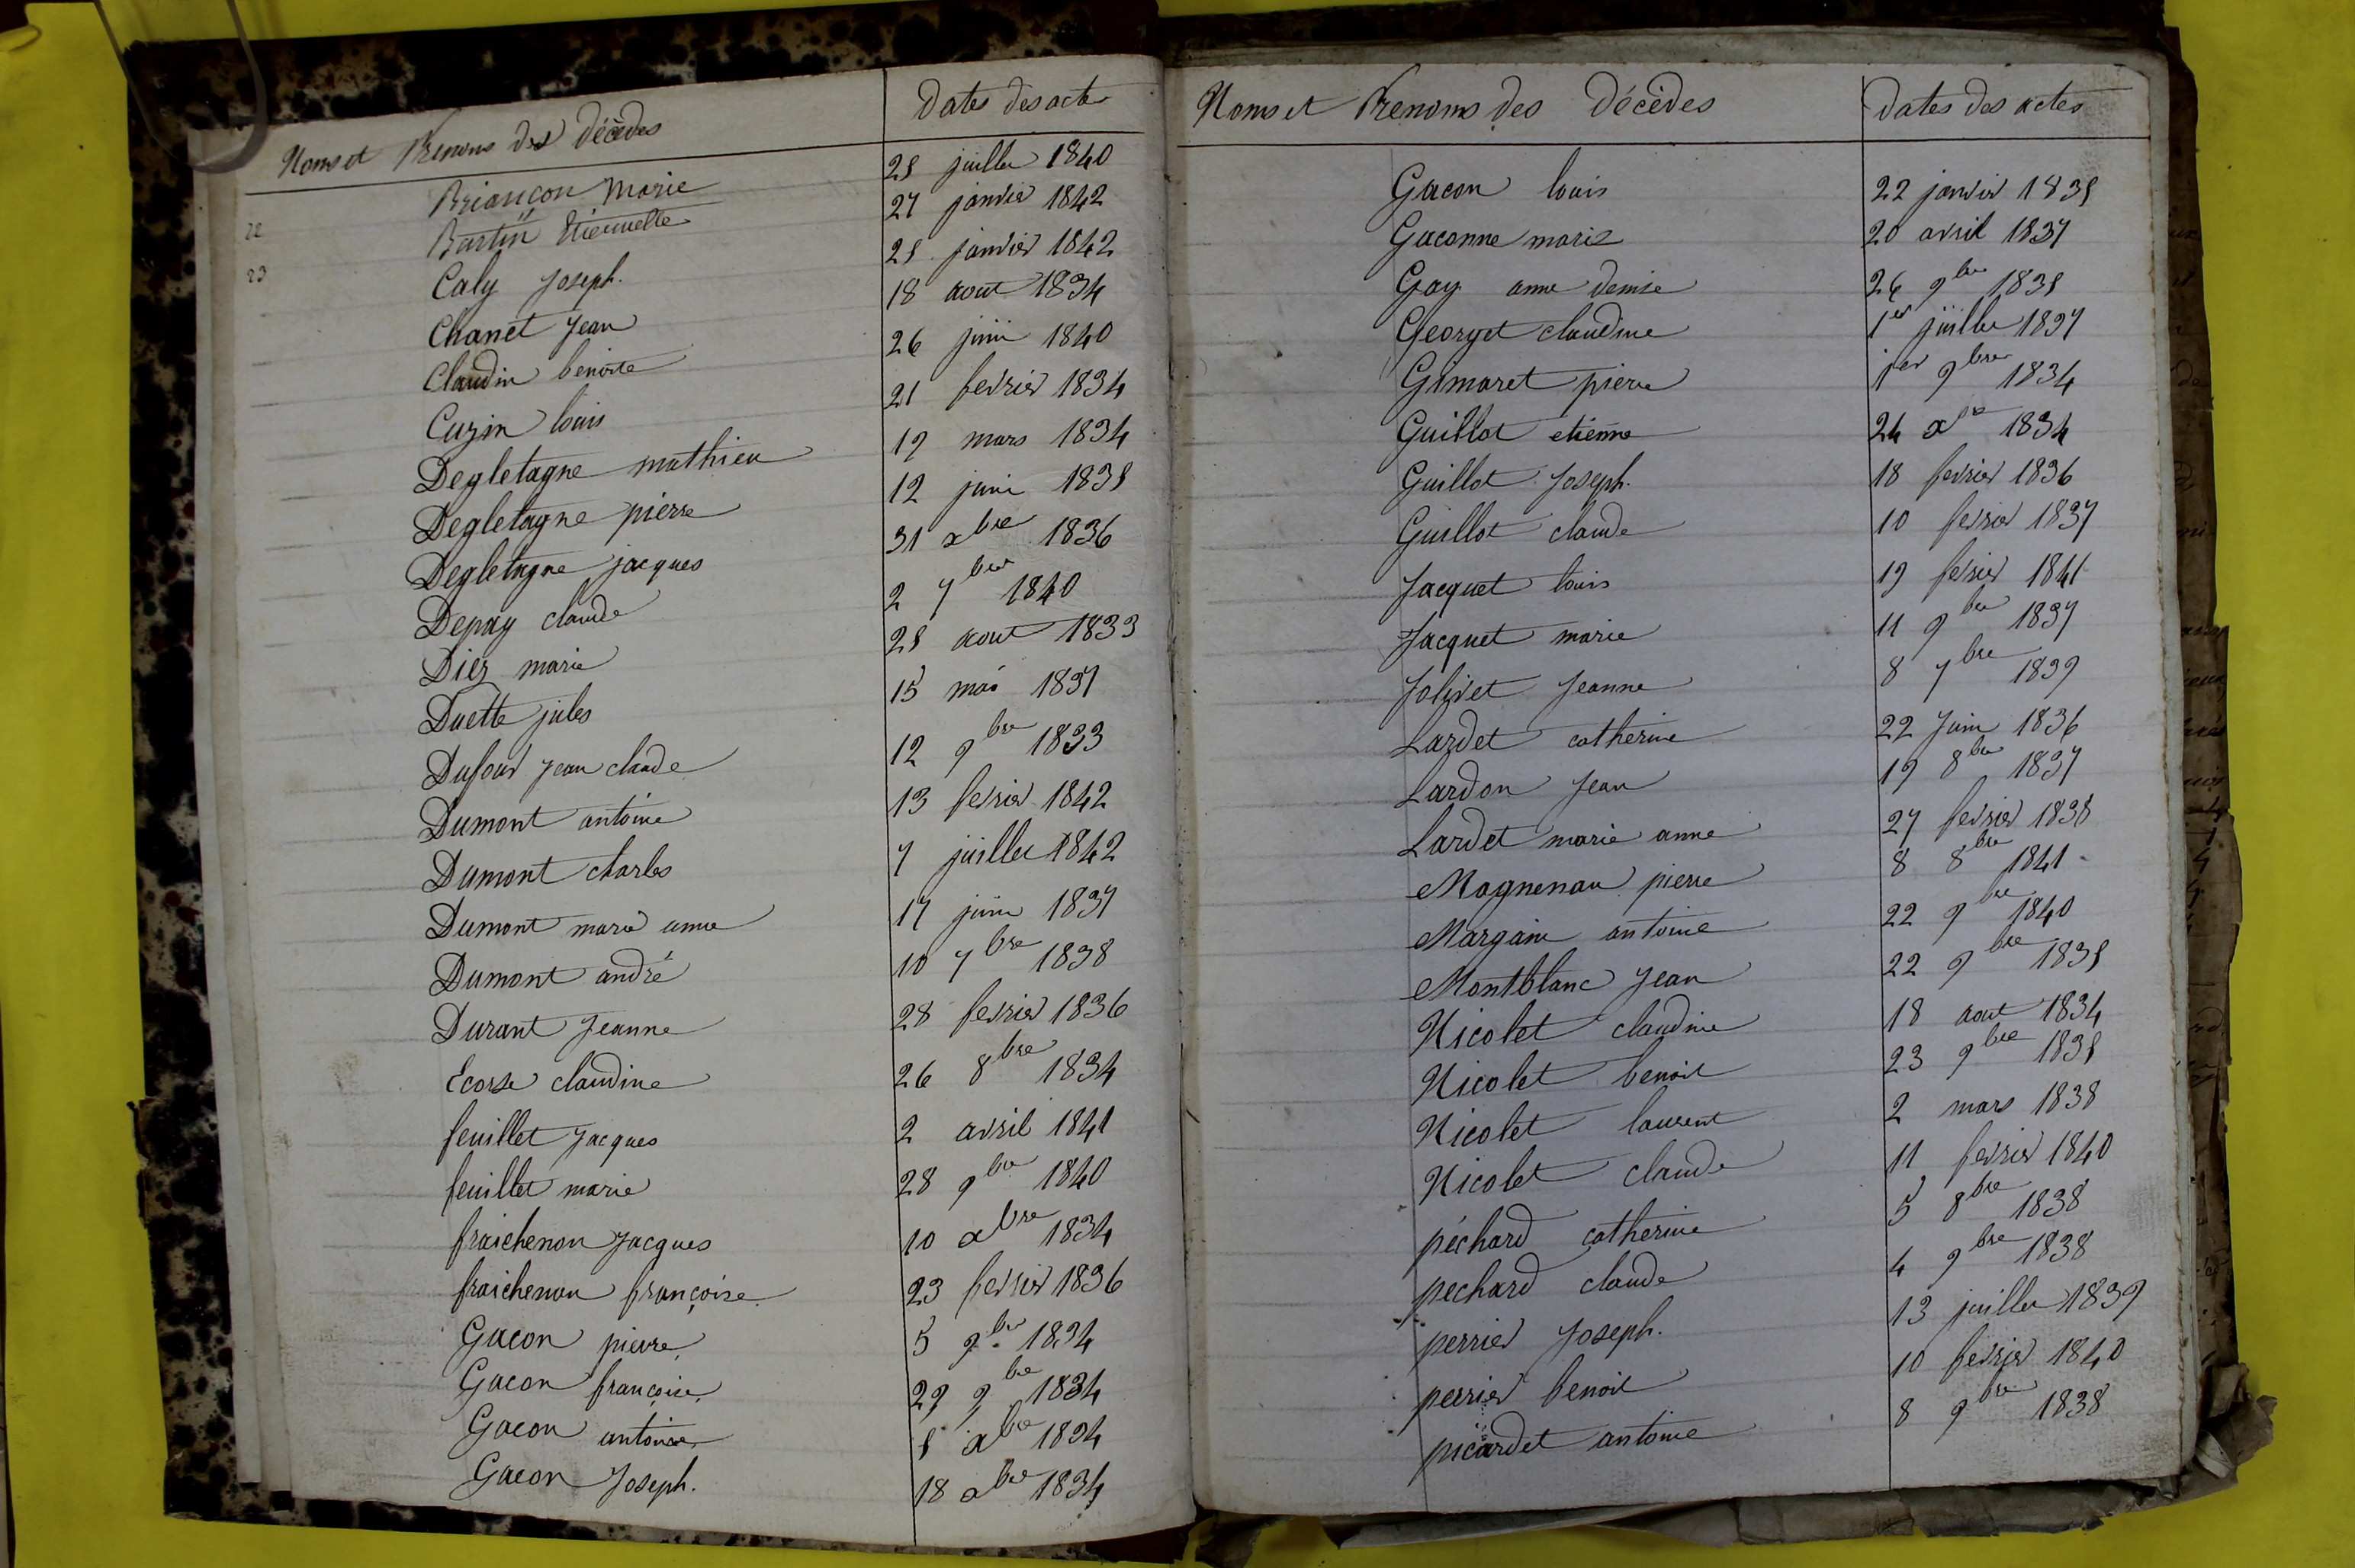 Noms et Prenoms des décèdes Dates des actes
Briançon Marie 28 juillet 1840
22 Bastin Etiennette 27 janvier 1842
23 Caly Joseph. 28 janvier 1842
Chanet Jean 18 aout 1834
Claudin benoite 26 juin 1840
Cuzin louis 21 fevrier 1834
Degletagne mathieu 19 mars 1834
Degletagne pierre 12 juin 1838
Degletagne jacques 31 xbre 1836
Depay claude 2 7bre 1840
Diez marie 28 aout 1833
Duette jules 15 mai 1837
Dufour jean claude 12 9bre 1833
Dumont antoine 13 fevrier 1842
Dumont charles 7 juillet 1842
Dumont marie anne 17 juin 1837
Dumont andré 10 7bre 1838
Durant Jeanne 28 fevrier 1836
Ecorse claudine 26 8bre 1834
feuillet Jacques 2 avril 1841
feuillet marie 28 9bre 1840
fraichenon Jacques 10 xbre 1834
fraichenon françoise 23 fevrier 1836
Gacon pierre 5 9bre 1834
Gacon françoise 29 9bre 1834
Gacon antoine 8 xbre 1834
Gacon Joseph. 18 xbre 1834
Noms et Prenoms des décèdes Dates des actes
Gacon louis 22 janvier 1838
Gaconne marie 20 avril 1837
Gay anne denise 26 9bre 1838
Georget claudine 1er juillet 1837
Gimaret pierre 1er 9bre 1834
Guillot etienne 24 xbre 1834
Guillot Joseph. 18 fevrier 1836
Guillot claude 10 fevrier 1837
Jacquet louis 19 fevrier 1841
Jacquet marie 11 9bre 1837
Jolivet Jeanne 8 7bre 1839
Lardet catherine 22 Juin 1836
Lardon Jean 19 8bre 1837
Lardet marie anne 27 fevrier 1838
Magnenan pierre 8 8bre 1841
Margain antoine 22 9bre 1840
Montblanc Jean 22 9bre 1838
Nicolet claudine 18 aout 1834
Nicolet benoit 23 9bre 1838
Nicolet laurent 2 mars 1838
Nicolet claude 11 fevrier 1840
péchard catherine 5 8bre 1838
pechard claude 4 9bre 1838
perrier Joseph. 13 juillet 1839
perrier benoit 10 fevrier 1840
picardet antoine 8 9bre 1838